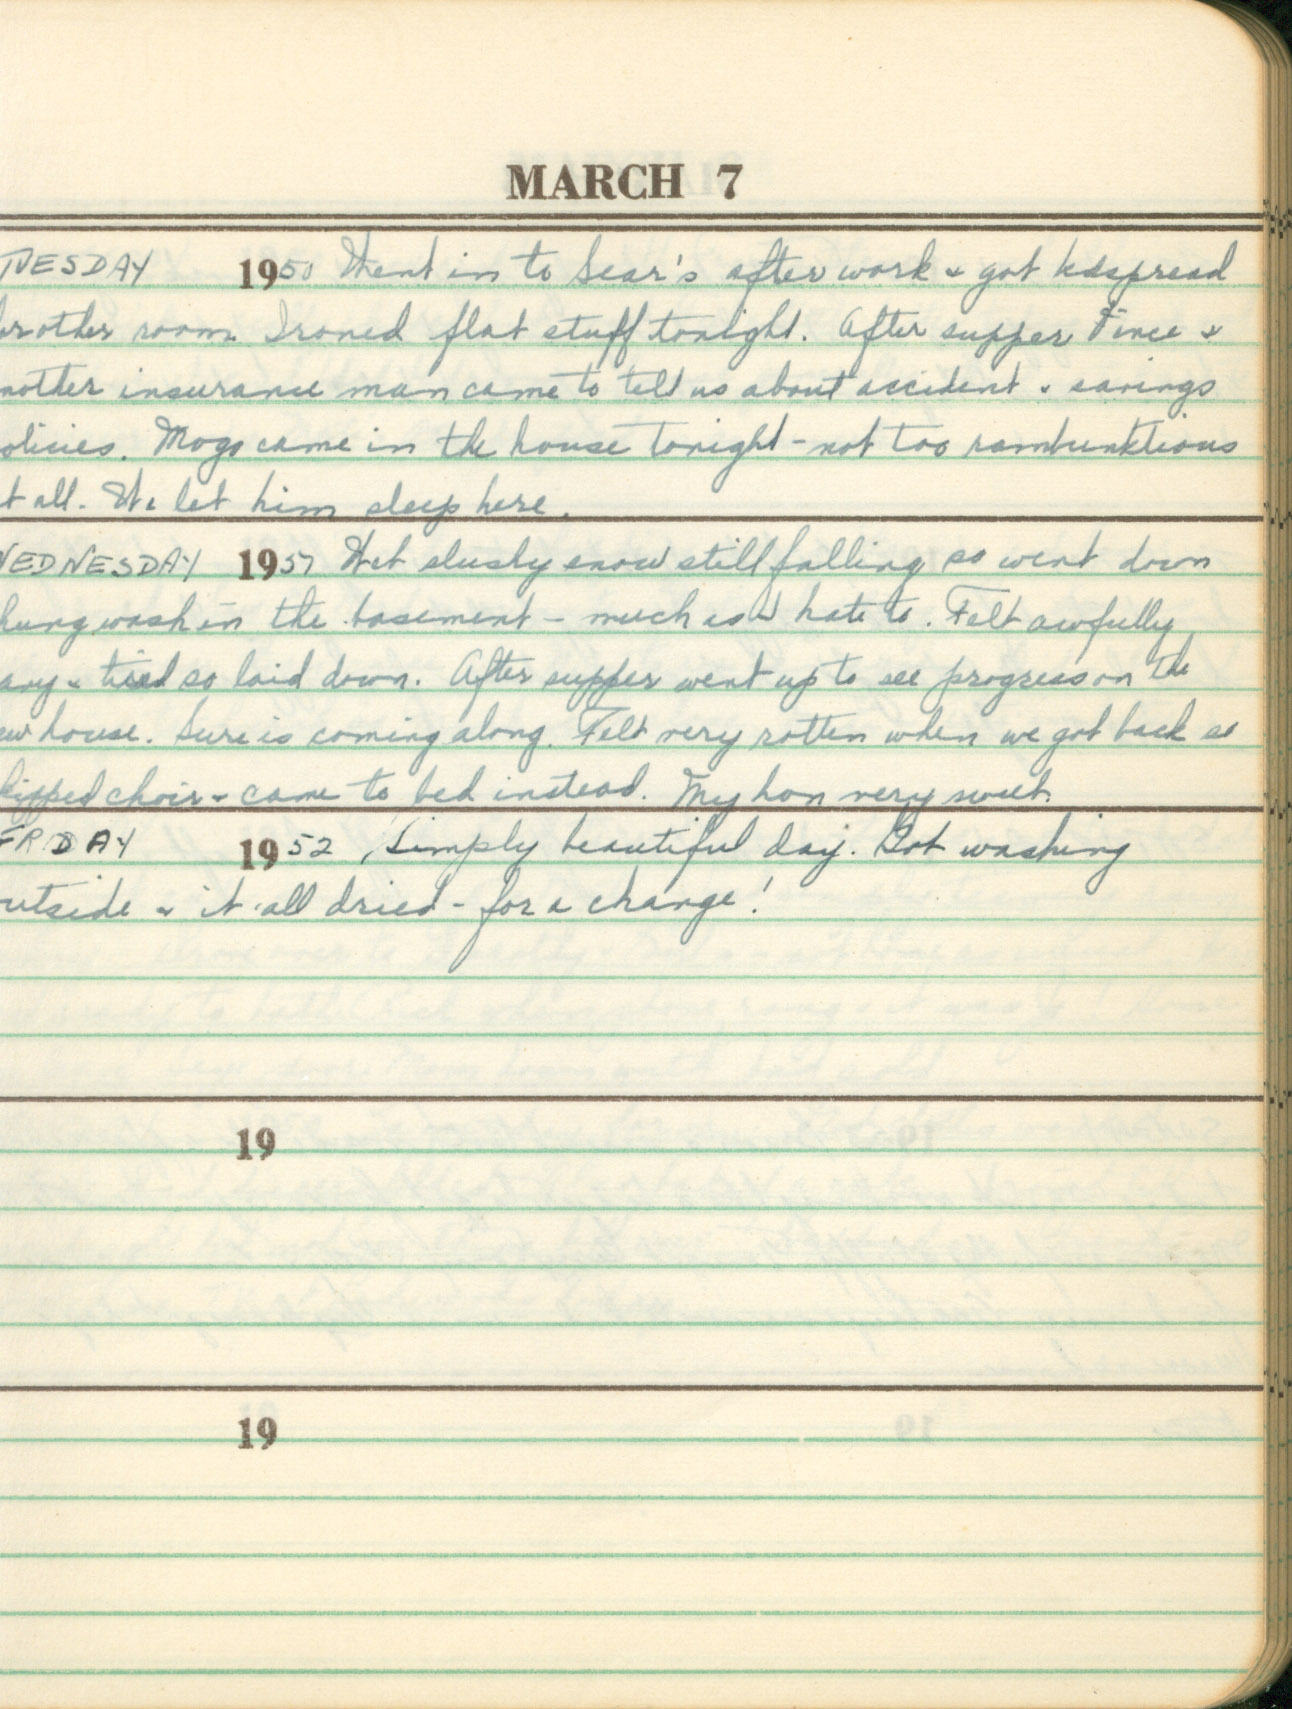 MARCH 7
TUESDAY 1950 Went in to Sear's after work & got bdspread
for other room. Ironed flat stuff tonight. After supper Vince &
nother insurance man came to tell us about accident & savings
olicies. Mogo came in the house tonight - not too rambunktious
t all. We let him sleep here.
WEDNESDAY 1951 Wet slushy snow still falling so went down
hung wash in the basement - much as I hate to. Felt awfully
& tired so laid down. After supper went up to see progress on the
ew house. Sure is coming along. Felt very rotten when we got back so
kipped choir & came to bed instead. My hon very sweet.
FRIDAY 1952 Simply beautiful day. Got washing
utside & it all dried - for a change!
19
19